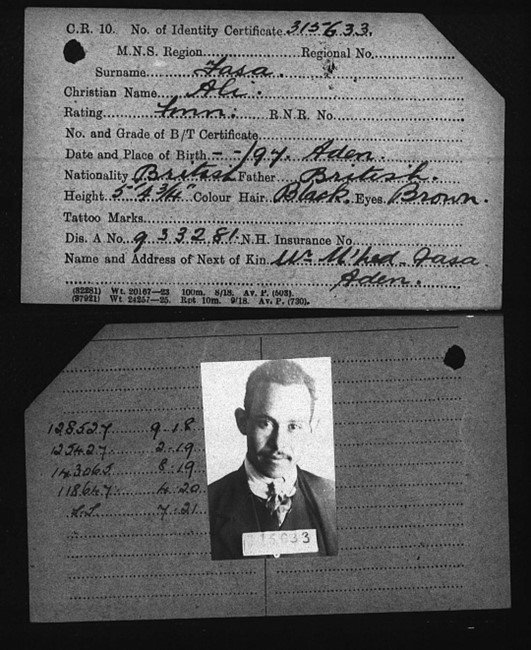 C.R. 10. No. of Identity Certificate 315633.
M.N.S. Region Regional No.
Surname Fasa.
Christian Name Ali.
Rating Fmn. R.N.R. No.
No. and Grade of B/T Certificate
Date and Place of Birth - -/97. Aden.
Nationality British Father British.
Height 5" 4 3/4" Colour Hair Black. Eyes Brown.
Tattoo Marks
Dis. A No. 933281. N.H. Insurance No.
Name and Address of Next of Kin M'hed. Fasa
Aden.
(32281) Wt. 20167—23 100m. 8/18. Av. P. (503).
(37921) Wt. 24257—25. Rpt 10m. 9/18. Av. P. (730).
128527 9.18
125427 2.19
143065 8.19
118647 4.20
7.21
315633